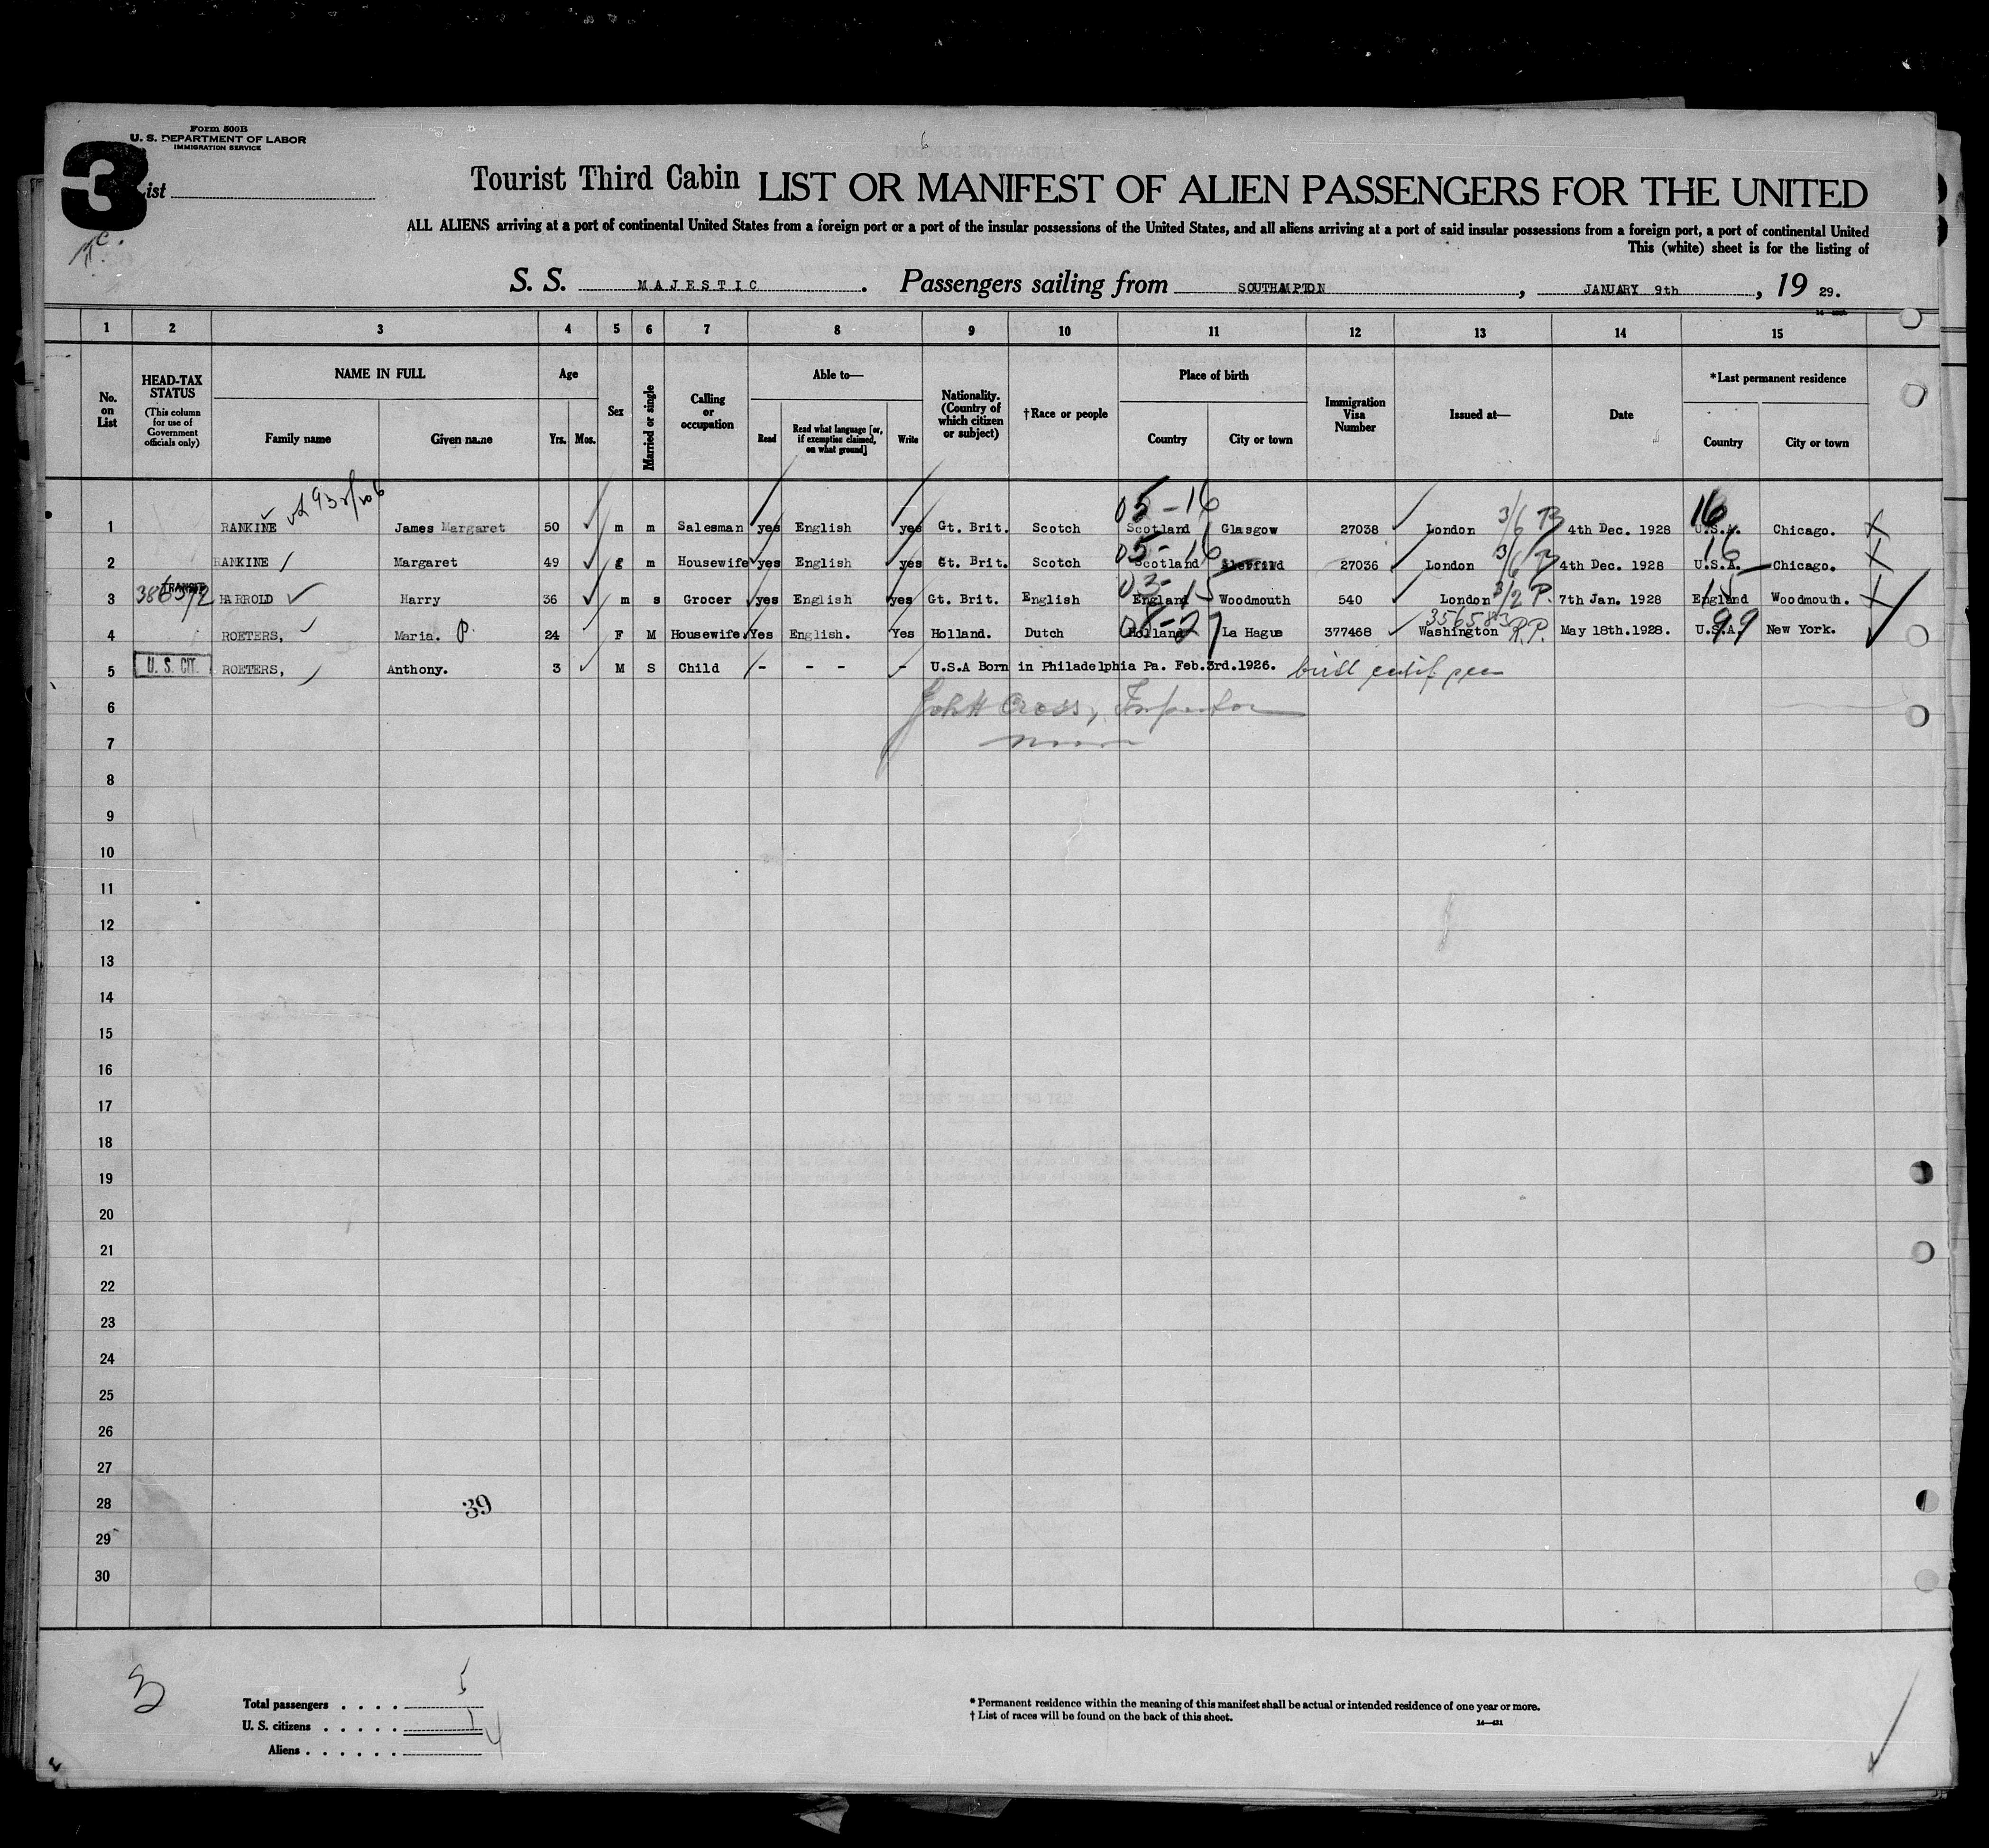 Form 500B
U. S. DEPARTMENT OF LABOR
IMMIGRATION SERVICE
3
ist
Tourist Third Cabin LIST OR MANIFEST OF ALIEN PASSENGERS FOR THE UNITED
ALL ALIENS arriving at a port of continental United States from a foreign port or a port of the insular possessions of the United States, and all aliens arriving at a port of said insular possessions from a foreign port, a port of continental United
This (white) sheet is for the listing of
S. S. MAJESTIC. Passengers sailing from SOUTHAMPTON, JANUARY 9th, 19 29.
1 2 3 4 5 6 7 8 9 10 11 12 13 14 15
No. on List
HEAD-TAX STATUS (This column for use of Government officials only)
NAME IN FULL
Family name Given name
Age
Yrs. Mos.
Sex
Married or single
Calling or occupation
Able to—
Read Read what language [or, if exemption claimed, on what ground] Write
Nationality. (Country of which citizen or subject)
†Race or people
Place of birth
Country City or town
Immigration Visa Number
Issued at—
Date
*Last permanent residence
Country City or town
05-16 3/6 16
1 RANKINE James Margaret 50 m m Salesman yes English yes Gt. Brit. Scotch Scotland Glasgow 27038 London 4th Dec. 1928 U.S.A. Chicago.
05-16 3/6 16
2 RANKINE Margaret 49 f m Housewife yes English yes Gt. Brit. Scotch Scotland 27036 London 4th Dec. 1928 U.S.A. Chicago.
TRANSIT 03-15 3/2 P. 15
3 HARROLD Harry 36 m s Grocer yes English yes Gt. Brit. English England Woodmouth 540 London 7th Jan. 1928 England Woodmouth.
08-27 R.P. 99
4 ROETERS, Maria. P. 24 F M Housewife. Yes English. Yes Holland. Dutch Holland La Hague 377468 Washington May 18th.1928. U.S.A. New York.
5 U. S. CIT. ROETERS, Anthony. 3 M S Child - - - - U.S.A Born in Philadelphia Pa. Feb.3rd.1926.
6 John H Cross, Inspector
7
8
9
10
11
12
13
14
15
16
17
18
19
20
21
22
23
24
25
26
27
28 39
29
30
3
Total passengers . . . . 5
U. S. citizens . . . . . 1
Aliens . . . . . . 4
* Permanent residence within the meaning of this manifest shall be actual or intended residence of one year or more.
† List of races will be found on the back of this sheet.
14—431